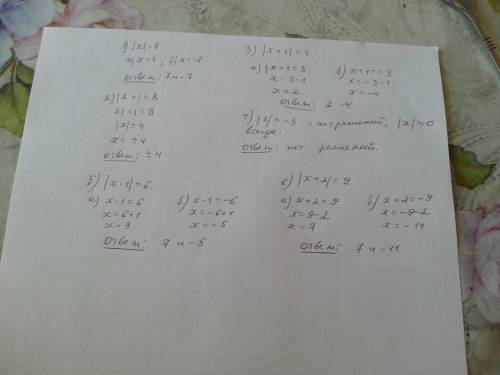 1) |x|=7
а) x=7, б) x=-7
Ответ: 7 и -7
2) |2x|=8,
2|x|=8
|x|=4
x=±4
Ответ: ±4
3) |x+1|=3
а) x+1=3
x=3-1
x=2
б) x+1=-3
x=-3-1
x=-4
Ответ: 2; -4.
4) |x|=-3, нет решений, |x|≥0
всегда.
Ответ: нет решений.
5) |x-1|=6.
а) x-1=6
x=6+1
x=7
б) x-1=-6
x=-6+1
x=-5
Ответ: 7 и -5.
6) |x+2|=9
а) x+2=9
x=9-2
x=7
б) x+2=-9
x=-9-2
x=-11
Ответ: 7 и -11.